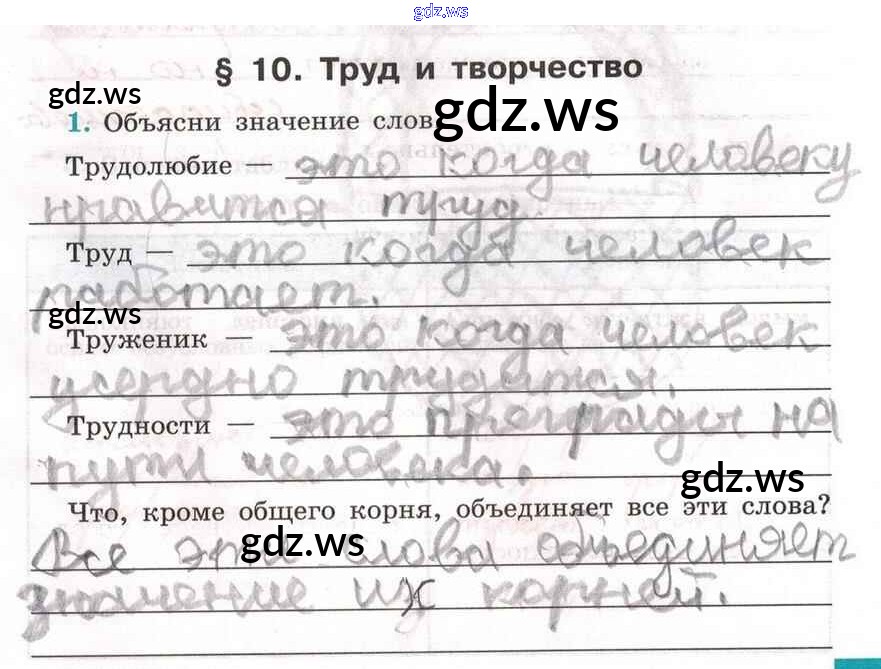 gdz.ws
§ 10. Труд и творчество
gdz.ws
1. Объясни значение слов
gdz.ws
Трудолюбие — это когда человеку
нравится труд.
Труд — это когда человек
работает.
gdz.ws
Труженик — это когда человек
усердно трудится.
Трудности — это преграды на
пути человека.
gdz.ws
Что, кроме общего корня, объединяет все эти слова?
gdz.ws
Все эти слова объединяет
значение их корней.